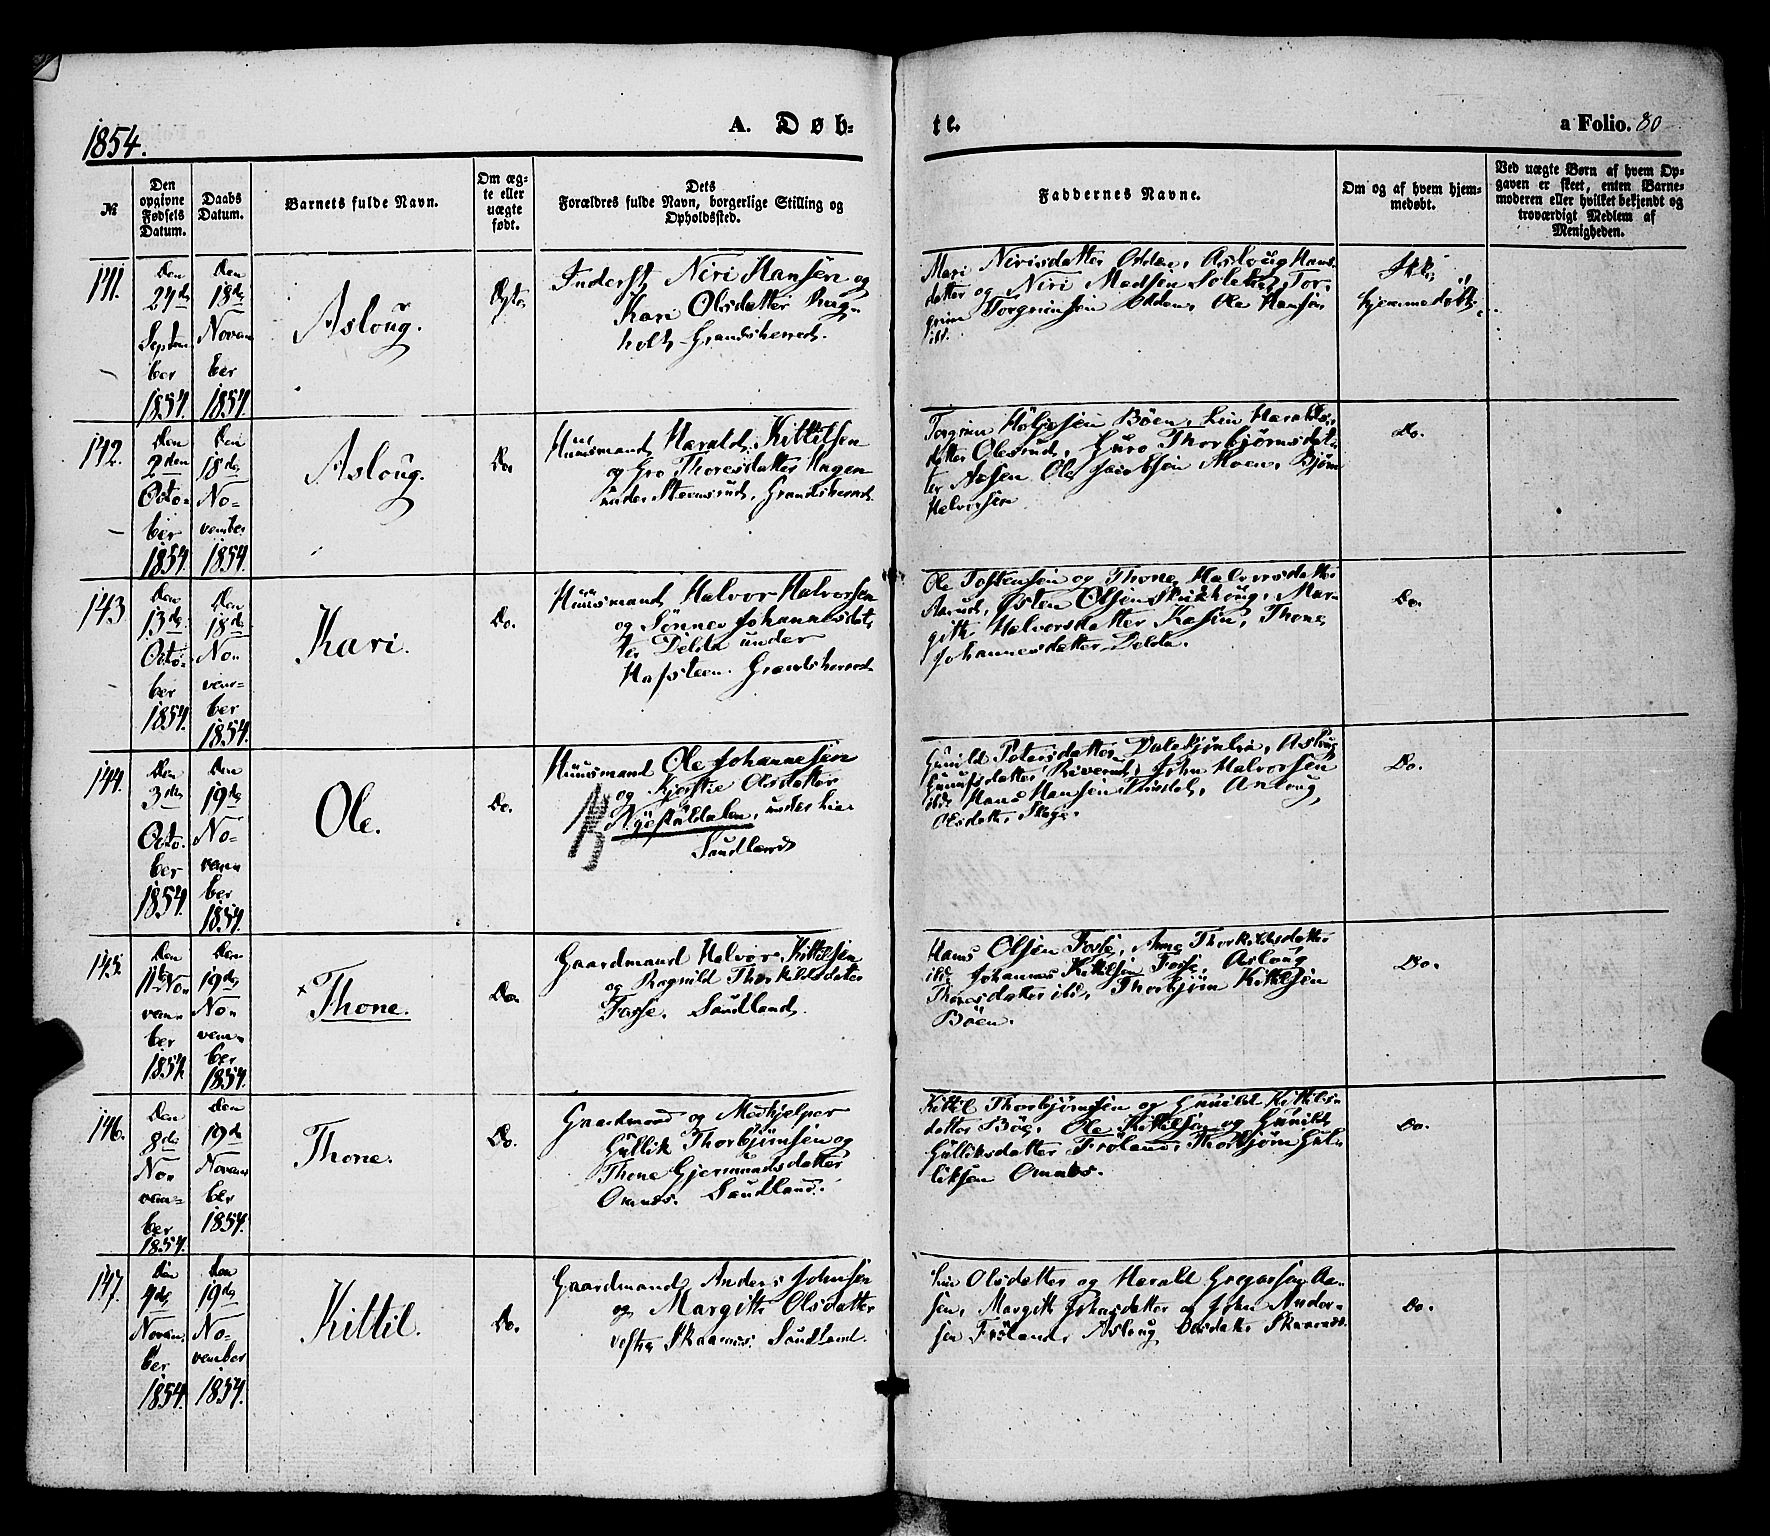 1854.
A. Døb-
te.
a Folio. 80
№
Den opgivne Fødsels Datum.
Daabs Datum.
Barnets fulde Navn.
Om ægte eller uægte født.
Dets Forældres fulde Navn, borgerlige Stilling og Opholdssted.
Faddernes Navne.
Om og af hvem hjemmedøbt.
Ved uægte Børn af hvem Opgaven er skeet, enten Barnemoderen eller hvilket bekjendt og troværdigt Medlem af Menigheden.
141.
Den
27de
Septem
ber
1854.
Den
18de
Novem
ber
1854
Asloug.
Ægte
Inderst Niri Hansen og
Kari Olsdatter
holt Grandsherred.
Mari Nirisdatter Odden, Asloug Hans
datter og Niri Madsen Tor-
grim Torgrimsen Odden, Ole Hansen
ibd.
Ikke
hjemmedøbt.
142.
Den
2den
Octo-
ber
1854
Den
18de
No-
vember
1854.
Asloug.
Do.
Huusmand Harald Kittilsen
og Gro Thoresdatter Hagen
under Steensrud, Grandsherred.
Torgrim Høljesen Bøen, Liv Haralds-
datter Olesrud, Guro Thorbjørnsdat-
ter Aasen Ole Jacobsen Moen, Bjørn
Halvorsen
Do.
143
Den
13de
Octo-
ber
1854.
Den
18de
No-
vem-
ber
1854.
Kari.
Do.
Huusmand Halvor Halvorsen
og Sønnev Johannesdat-
ter Delda under
Hafsteen. Grandsherred
Ole og Thone Halvorsdatter
Aarud, Østen Olsen Mar-
git Halvorsdatter Kasin, Thone
Johannesdatter Delda.
Do.
144.
Den
3de
Octo-
ber
1854.
Den
19de
No-
vem-
ber
1854.
Ole.
Do.
Huusmand Ole Johannesen
og Kjerstie Olsdatter
under
Saudland
Gunild Petersdatter Aslaug
Gunulfsdatter John Halvorsen
ibd. Hans Hansen
Olsdatter
Do.
145.
Den
11te No-
vem-
ber
1854.
Den
19de
No-
vem-
ber
1854.
× Thone.
Do.
Gaardmand Halvor Kittilsen
og Ragnild Thorkildsdatter
Fosse. Saudland.
Hans Olsen Fosse, Anne Thorkildsdatter
ibd. Johannes Kittilsen Fosse, Asloug
Thoresdatter ibd, Thorbjørn Kittilsen
Bøen.
Do.
146.
Den
8de
No-
vem-
ber
1854.
Den
19de
Novem
ber
1854.
Thone.
Do.
Gaardmand og Medhjelper
Gullik Thorbjørnsen og
Thone Gjermundsdatter
Omnes. Saudland.
Kittil Thorbjørnsen og Gunild Kittils-
datter Bøe, Ole Kittilsen og Gunild
Gulliksdatter Frøland, Thorbjørn Gul-
liksen Omnes.
Do.
147.
Den
9de
Novem
ber
1854.
Den
19de
No-
vember
1854.
Kittil.
Do.
Gaardmand Anders Johnsen
og Margith Olsdatter
vestre Skaarnes. Saudland.
Liv Olsdatter og Harald Gregarsen Aa-
sen, Margith Johnsdatter og John Ander-
sen Frøland, Asloug Olsdatter Skaarnes.
Do.